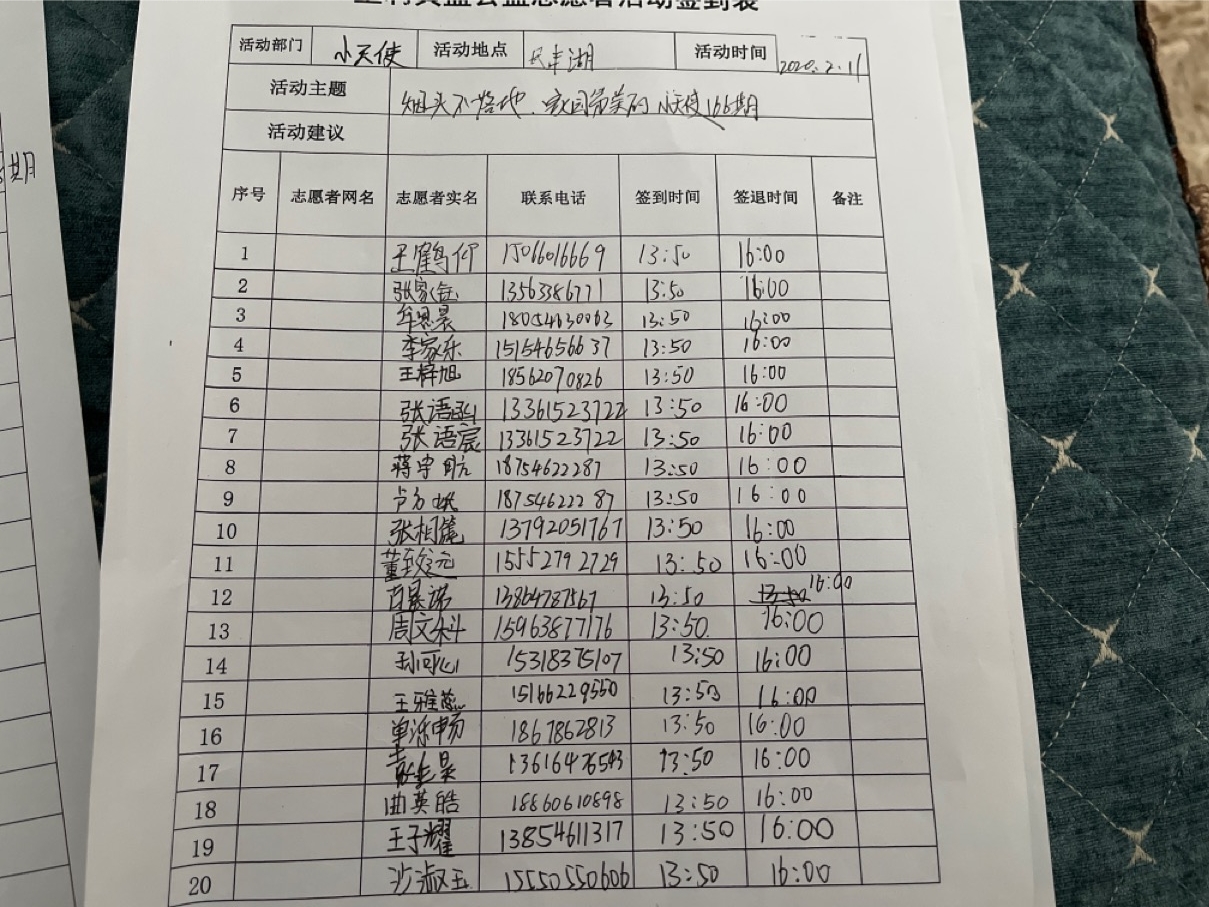 公益志愿者活动签到表
活动部门 小天使 活动地点 民丰湖 活动时间 2020.2.11
活动主题 烟头不落地.家园最美的小天使166期
活动建议
期
序号 志愿者网名 志愿者实名 联系电话 签到时间 签退时间 备注
1 王鹤仔 15066016669 13:50 16:00
2 张家 13563386771 13:50 16:00
3 牟思晨 18054630063 13:50 16:00
4 李家乐 15154656637 13:50 16:00
5 王梓旭 18562070826 13:50 16:00
6 张语函 13361523722 13:50 16:00
7 张语宸 13361523722 13:50 16:00
8 蒋宇航 18754622287 13:50 16:00
9 18754622287 13:50 16:00
10 张栩毓 13792051767 13:50 16:00
11 董致远 15552792729 13:50 16:00
12 13864787567 13:50 16:00
13 周文科 15963877176 13:50 16:00
14 孙可心 15318375107 13:50 16:00
15 王雅蕊 15166229550 13:50 16:00
16 单泺畅 1867862813 13:50 16:00
17 13616476543 13:50 16:00
18 曲英皓 18860610898 13:50 16:00
19 王子耀 13854611317 13:50 16:00
20 沙淑玉 15550550606 13:50 16:00